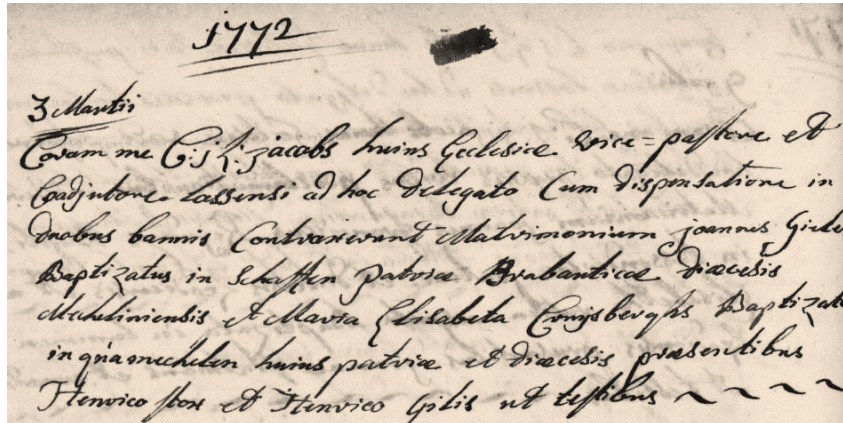 1772
3 Martii
Coram me C: j: L: jacobs huius Ecclesiæ vice=pastore et
Coadjutore Lassensi ad hoc delegato Cum dispensatione in
duobus bannis Contraxerunt Matrimonium joannes
Baptizatus in Schaffen patriæ Brabanticæ diœcesis
Mechliniensis et Maria Elisabeta Conijsberghs Baptizata
in quamechelen huius patriæ et diœcesis præsentibus
Henrico stox et Henrico Gilis ut testibus